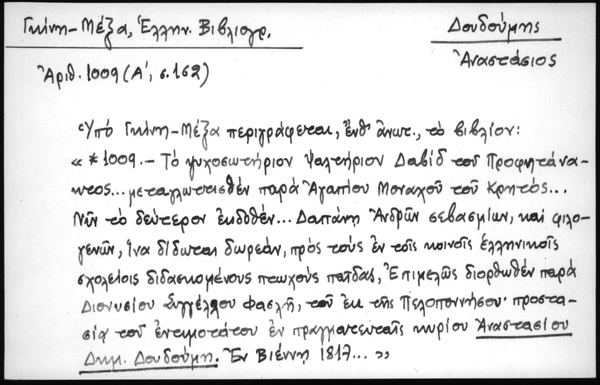 Γκίνη-Μέξα, Ἑλλην. Βιβλιογρ.
Δουδούμης
Ἀναστάσιος
Ἀριθ. 1009 (Α', σ. 162)
Ὑπό Γκίνη-Μέξα περιγράφεται, ἔνθ' ἄνωτ., τὸ βιβλίον:
« *1009.- Τὸ ψυχοσωτήριον ψαλτήριον Δαβὶδ τοῦ Προφητάνα-
κτος... μεταγλωττισθέν παρὰ Ἀγαπίου Μοναχοῦ τοῦ Κρητός...
Νῦν τὸ δεύτερον ἐκδοθέν... Δαπάνῃ Ἀνδρῶν σεβασμίων, καὶ φιλο-
γενῶν, ἵνα δίδωται δωρεάν, πρὸς τοὺς ἐν τοῖς κοινοῖς ἑλληνικοῖς
σχολείοις διδασκομένους πτωχοὺς παῖδας, Ἐπιμελῶς διορθωθέν παρὰ
Διονυσίου Συγγέλλου Φασλῆ, τοῦ ἐκ τῆς Πελοποννήσου· προστα-
σίᾳ τοῦ ἐντιμοτάτου ἐν πραγματευταῖς κυρίου Ἀναστασίου
Δημ. Δουδούμη. Ἐν Βιέννῃ 1817... »